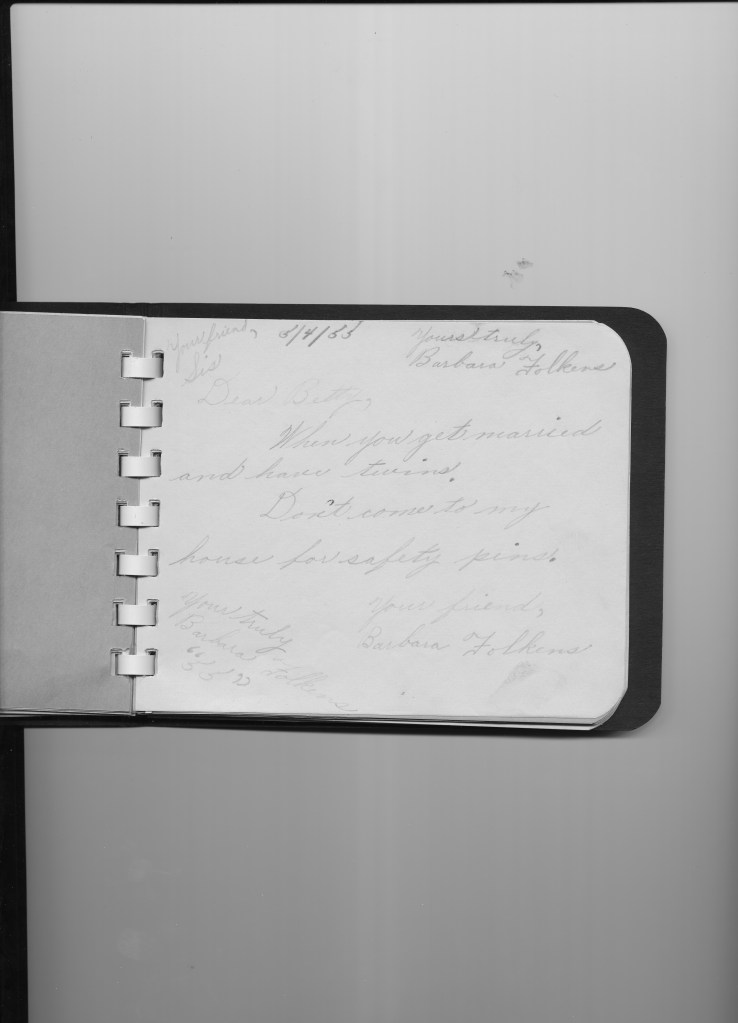 Your friend,
Sis
5/4/53
Yours truly,
Barbara Folkens
Dear Betty,
When you get married
and have twins.
Don't come to my
house for safety pins.
Your friend,
Barbara Folkens
Yours truly
Barbara Folkens